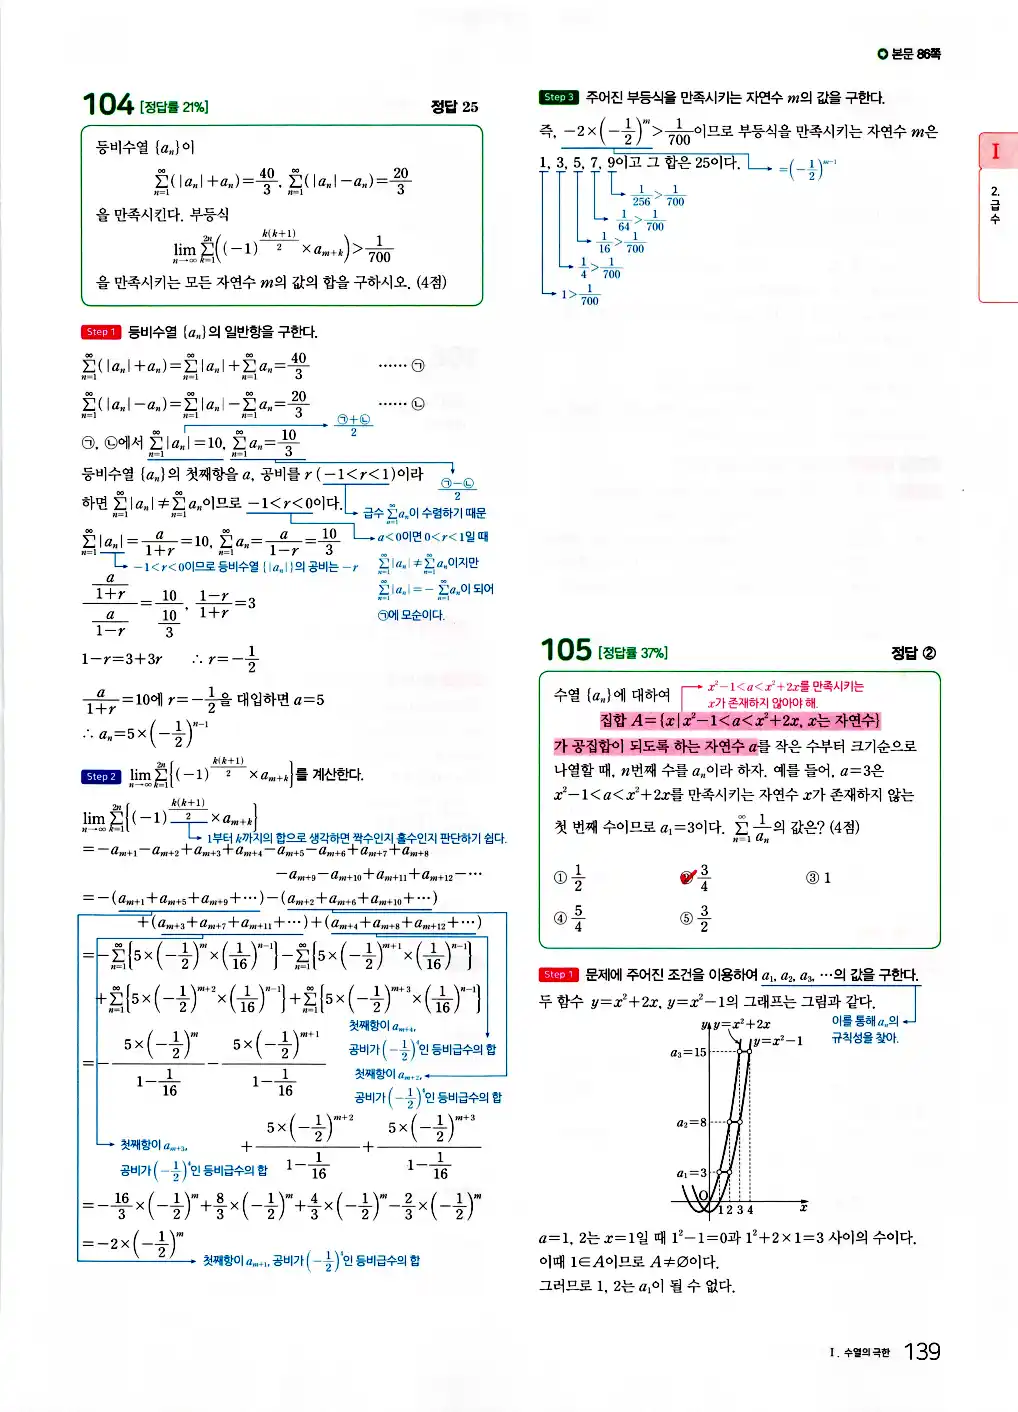 본문 86쪽
104 [정답률 21%] 정답 25
등비수열 {aₙ}이
∑_{n=1}^{∞}(|aₙ|+aₙ)=40/3, ∑_{n=1}^{∞}(|aₙ|-aₙ)=20/3
을 만족시킨다. 부등식
lim_{n→∞} ∑_{k=1}^{2n}((-1)^{k(k+1)/2}×a_{m+k})>1/700
을 만족시키는 모든 자연수 m의 값의 합을 구하시오. (4점)
Step 1 등비수열 {aₙ}의 일반항을 구한다.
∑_{n=1}^{∞}(|aₙ|+aₙ)=∑_{n=1}^{∞}|aₙ|+∑_{n=1}^{∞}aₙ=40/3 ······ ㉠
∑_{n=1}^{∞}(|aₙ|-aₙ)=∑_{n=1}^{∞}|aₙ|-∑_{n=1}^{∞}aₙ=20/3 ······ ㉡
(㉠+㉡)/2
㉠, ㉡에서 ∑_{n=1}^{∞}|aₙ|=10, ∑_{n=1}^{∞}aₙ=10/3
등비수열 {aₙ}의 첫째항을 a, 공비를 r (-1<r<1)이라
(㉠-㉡)/2
하면 ∑_{n=1}^{∞}|aₙ|≠∑_{n=1}^{∞}aₙ이므로 -1<r<0이다.
급수 ∑_{n=1}^{∞}aₙ이 수렴하기 때문
∑_{n=1}^{∞}|aₙ|=a/(1+r)=10, ∑_{n=1}^{∞}aₙ=a/(1-r)=10/3
a<0이면 0<r<1일 때
∑_{n=1}^{∞}|aₙ|≠∑_{n=1}^{∞}aₙ이지만
∑_{n=1}^{∞}|aₙ|=-∑_{n=1}^{∞}aₙ이 되어
㉠에 모순이다.
-1<r<0이므로 등비수열 {|aₙ|}의 공비는 -r
(a/(1+r))/(a/(1-r))=10/(10/3), (1-r)/(1+r)=3
1-r=3+3r ∴ r=-1/2
a/(1+r)=10에 r=-1/2을 대입하면 a=5
∴ aₙ=5×(-1/2)^{n-1}
Step 2 lim_{n→∞} ∑_{k=1}^{2n}{(-1)^{k(k+1)/2}×a_{m+k}}를 계산한다.
lim_{n→∞} ∑_{k=1}^{2n}{(-1)^{k(k+1)/2}×a_{m+k}}
1부터 k까지의 합으로 생각하면 짝수인지 홀수인지 판단하기 쉽다.
=-a_{m+1}-a_{m+2}+a_{m+3}+a_{m+4}-a_{m+5}-a_{m+6}+a_{m+7}+a_{m+8}
-a_{m+9}-a_{m+10}+a_{m+11}+a_{m+12}-···
=-(a_{m+1}+a_{m+5}+a_{m+9}+···)-(a_{m+2}+a_{m+6}+a_{m+10}+···)
+(a_{m+3}+a_{m+7}+a_{m+11}+···)+(a_{m+4}+a_{m+8}+a_{m+12}+···)
=-∑_{n=1}^{∞}{5×(-1/2)^m×(1/16)^{n-1}}-∑_{n=1}^{∞}{5×(-1/2)^{m+1}×(1/16)^{n-1}}
+∑_{n=1}^{∞}{5×(-1/2)^{m+2}×(1/16)^{n-1}}+∑_{n=1}^{∞}{5×(-1/2)^{m+3}×(1/16)^{n-1}}
첫째항이 a_{m+4},
공비가 (-1/2)^4인 등비급수의 합
첫째항이 a_{m+2},
공비가 (-1/2)^4인 등비급수의 합
=-(5×(-1/2)^m)/(1-1/16)-(5×(-1/2)^{m+1})/(1-1/16)
+(5×(-1/2)^{m+2})/(1-1/16)+(5×(-1/2)^{m+3})/(1-1/16)
첫째항이 a_{m+3},
공비가 (-1/2)^4인 등비급수의 합
=-16/3×(-1/2)^m+8/3×(-1/2)^m+4/3×(-1/2)^m-2/3×(-1/2)^m
=-2×(-1/2)^m
첫째항이 a_{m+1}, 공비가 (-1/2)^4인 등비급수의 합
Step 3 주어진 부등식을 만족시키는 자연수 m의 값을 구한다.
즉, -2×(-1/2)^m>1/700이므로 부등식을 만족시키는 자연수 m은
1, 3, 5, 7, 9이고 그 합은 25이다.
=(-1/2)^{m-1}
1/256>1/700
1/64>1/700
1/16>1/700
1/4>1/700
1>1/700
I
2.
급
수
105 [정답률 37%] 정답 ②
수열 {aₙ}에 대하여
x²-1<a<x²+2x를 만족시키는
x가 존재하지 않아야 해.
집합 A={x|x²-1<a<x²+2x, x는 자연수}
가 공집합이 되도록 하는 자연수 a를 작은 수부터 크기순으로
나열할 때, n번째 수를 aₙ이라 하자. 예를 들어, a=3은
x²-1<a<x²+2x를 만족시키는 자연수 x가 존재하지 않는
첫 번째 수이므로 a₁=3이다. ∑_{n=1}^{∞} 1/aₙ의 값은? (4점)
① 1/2 ② 3/4 ③ 1
④ 5/4 ⑤ 3/2
Step 1 문제에 주어진 조건을 이용하여 a₁, a₂, a₃, ···의 값을 구한다.
두 함수 y=x²+2x, y=x²-1의 그래프는 그림과 같다.
이를 통해 aₙ의
규칙성을 찾아.
y y=x²+2x
y=x²-1
a₃=15
a₂=8
a₁=3
O 1 2 3 4 x
a=1, 2는 x=1일 때 1²-1=0과 1²+2×1=3 사이의 수이다.
이때 1∈A이므로 A≠∅이다.
그러므로 1, 2는 a₁이 될 수 없다.
I. 수열의 극한 139